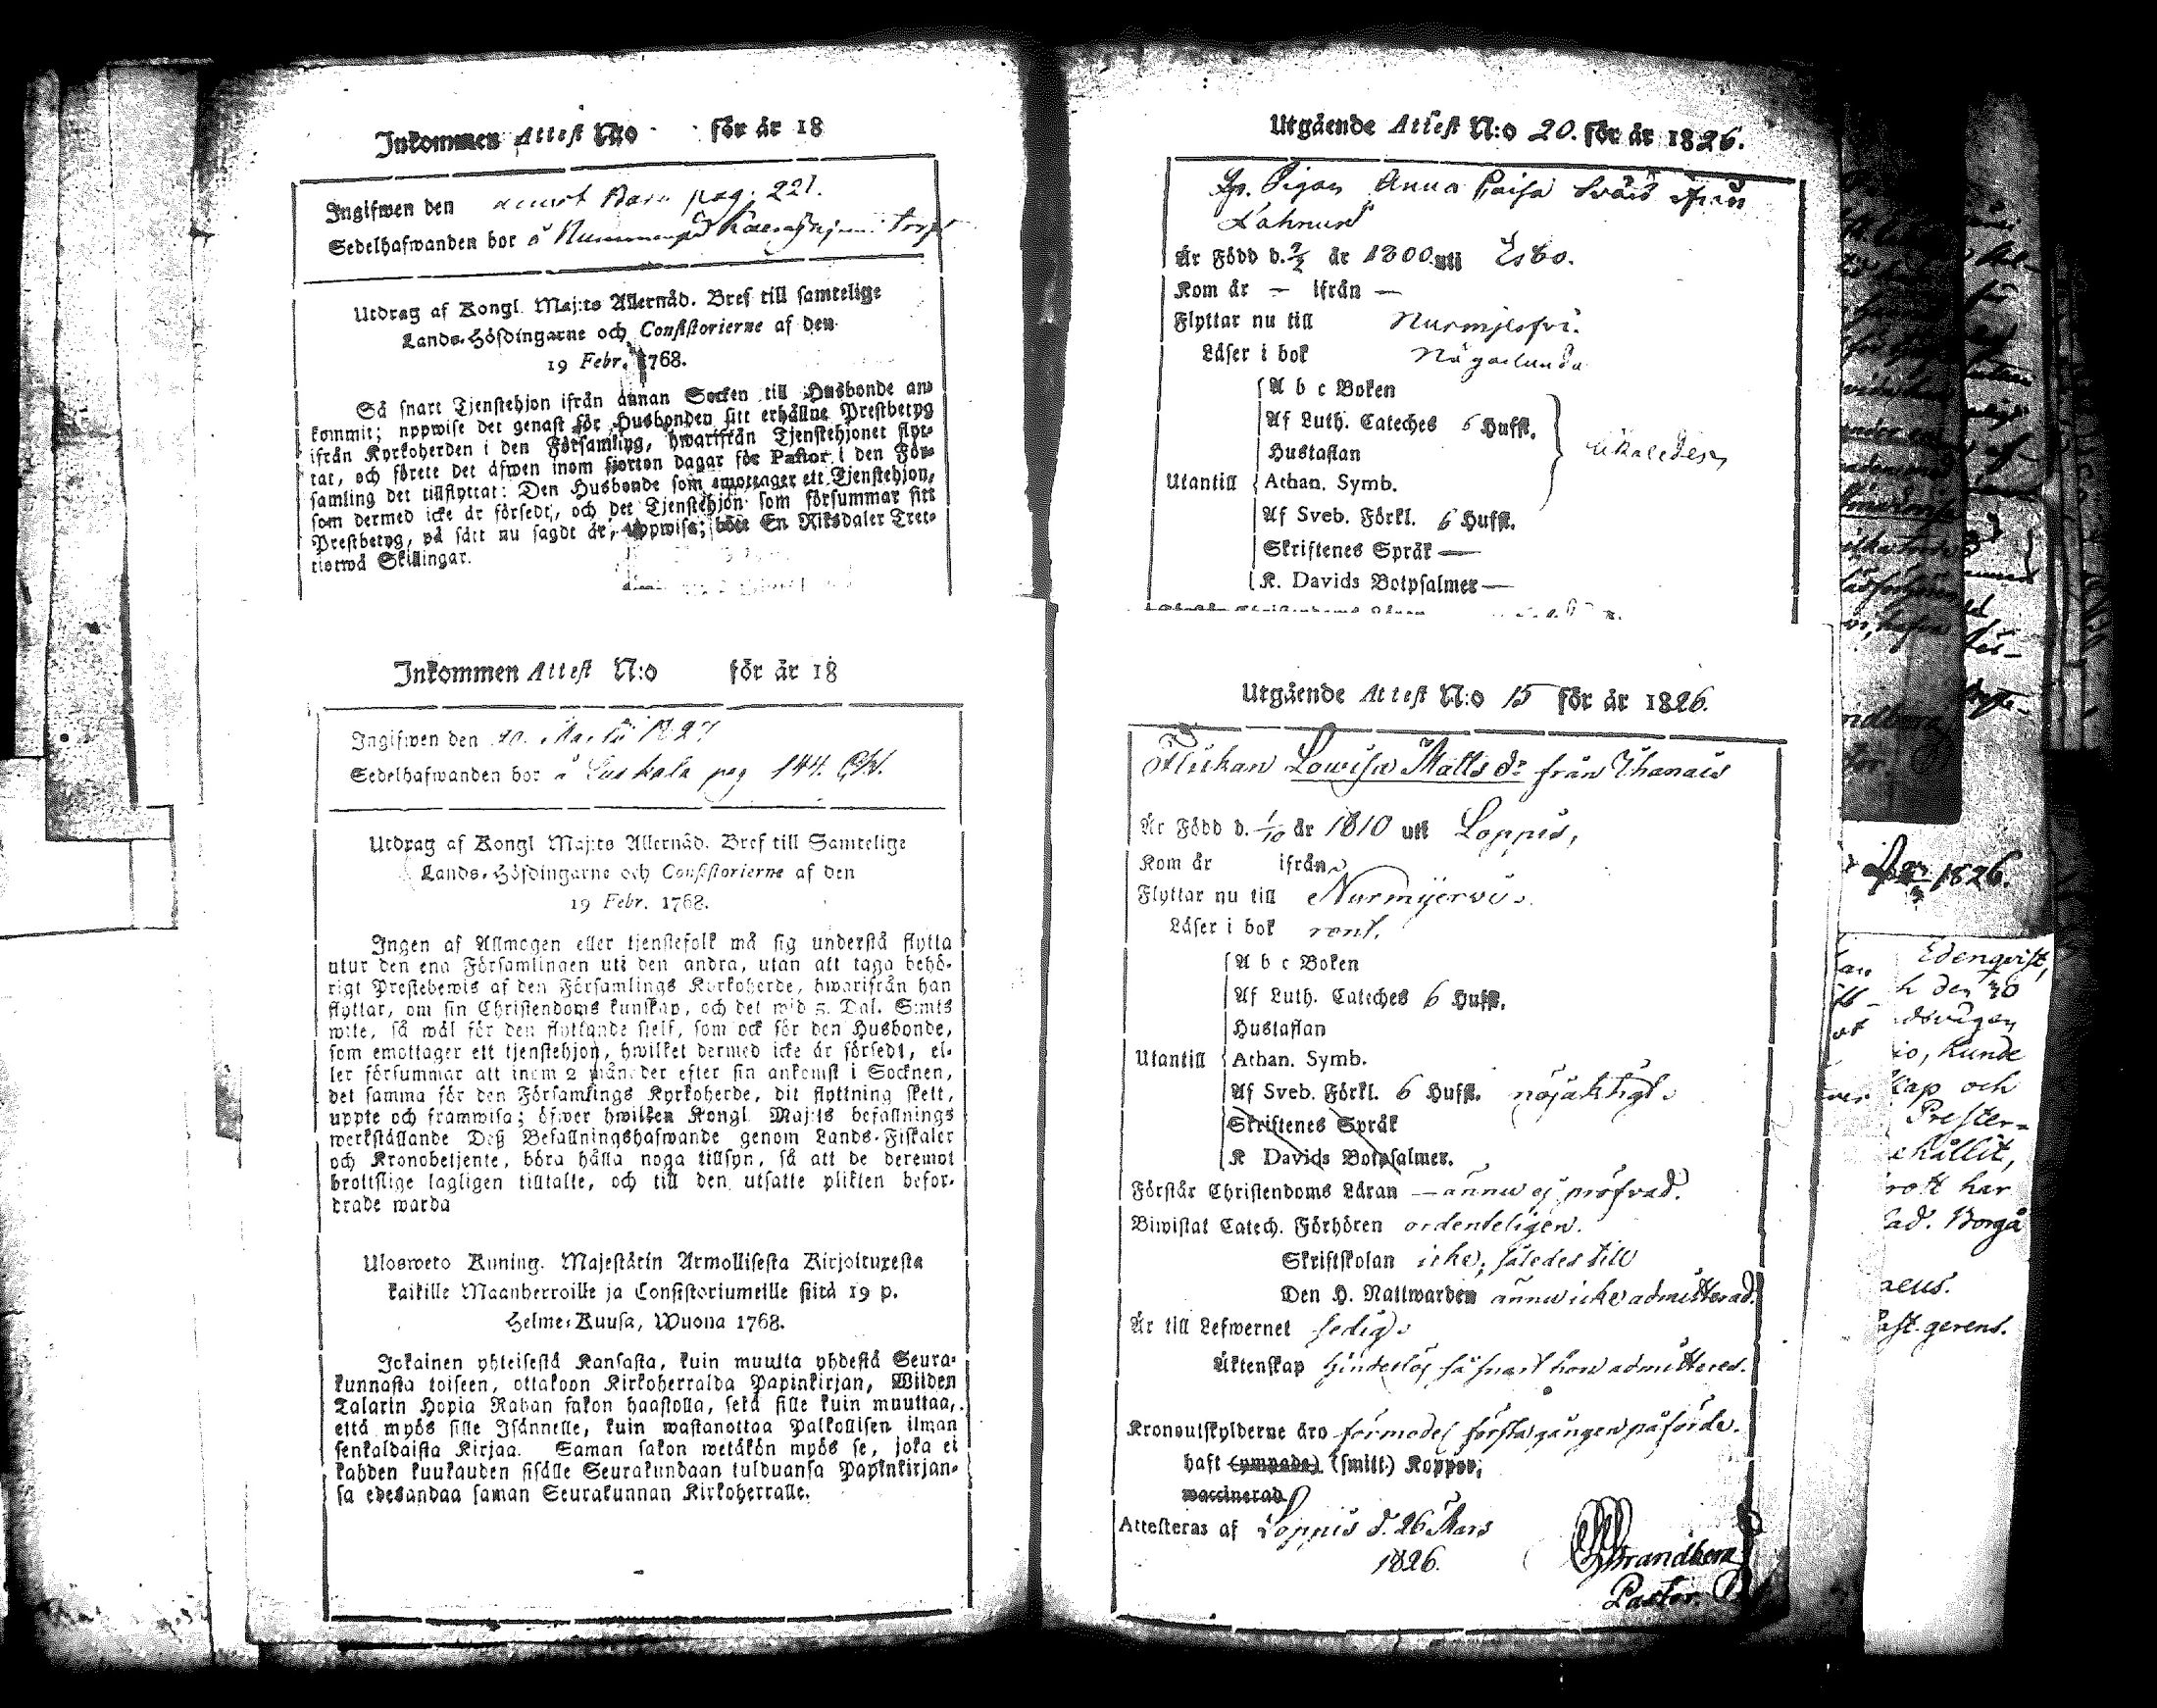 Inkommen Attest N:o för år 18
Ingifwen den pag. 221.
Sedelhafwanden bor å
Utdrag af Kongl. Maj:ts Allernåd. Bref till samtelige
Lands-Höfdingarne och Consistorierne af den
19 Febr. 1768.
Så snart Tjenstehjon ifrån annan Socken till Husbonde an-
kommit; uppwise det genast för Husbonden sitt erhållne Prestbetyg
ifrån Kyrkoherden i den Församling, hwarifrån Tjenstehjonet flyt-
tat, och förete det äfwen inom fjorton dagar för Pastor i den För-
samling det tillflyttat: Den Husbonde som emottager ett Tjenstehjon,
som dermed icke är försedt, och det Tjenstehjon som försummar sitt
Prestbetyg, på sätt nu sagdt är, uppwisa; böte En Riksdaler Tret-
tiotwå Skillingar.
Inkommen Attest N:o för år 18
Ingifwen den 20. Martii 1827
Sedelhafwanden bor å pag 144.
Utdrag af Kongl Maj:ts Allernåd. Bref till Samtelige
Lands-Höfdingarne och Consistorierne af den
19 Febr. 1768.
Ingen af Allmogen eller tjenstefolk må sig understå flytta
utur den ena Församlingen uti den andra, utan att taga behö-
rigt Prestebewis af den Församlings Kyrkoherde, hwarifrån han
flyttar, om sin Christendoms kunskap, och det wid 5. Dal. S:mts
wite, så wäl för den flyttande sielf, som ock för den Husbonde,
som emottager ett tjenstehjon, hwilket dermed icke är försedt, el-
ler försummar att inom 2 måneder efter sin ankomst i Socknen,
det samma för den Församlings Kyrkoherde, dit flyttning skett,
uppte och framwisa; öfwer hwilken Kongl Maj:ts befallnings
werkställande Deß Befallningshafwande genom Lands-Fiskaler
och Kronobetjente, böra hålla noga tillsyn, så att de deremot
brottslige lagligen tilltalte, och till den utsatte plikten befor-
drade warda
Ulosweto Kuning. Majestätin Armollisesta Kirjoituxesta
kaikille Maanherroille ja Consistoriumeille siitä 19 p.
Helme-Kuusa, Wuona 1768.
Jokainen yhteisestä Kansasta, kuin muutta yhdestä Seura-
kunnasta toiseen, ottakoon Kirkoherralda Papinkirjan, Wiiden
Talarin Hopia Rahan sakon haastolla, sekä sille kuin muuttaa,
että myös sille Isännelle, kuin wastanottaa Palkollisen ilman
senkaldaista Kirjaa. Saman sakon wetäkön myös se, joka ei
kahden kuukauden sisälle Seurakundaan tulduansa Papinkirjan-
sa edesandaa saman Seurakunnan Kirkoherralle.
Utgående Attest N:o 20. för år 1826.
Pigan Anna Caisa från
Är Född d. år 1800. uti Esbo.
Kom år — ifrån —
Flyttar nu till Nurmijerfvi.
Läser i bok någorlunda
A b c Boken
Af Luth. Cateches 6 Hufst.
Hustaflan
likaledes
Utantill Athan. Symb.
Af Sveb. Förkl. 6 Hufst.
Skriftenes Språk —
K. Davids Botpsalmer —
Utgående Attest N:o 15 för år 1826.
Flickan Lowisa Matts dr från
Är Född d. 1/10 år 1810 uti Loppis,
Kom år ifrån
Flyttar nu till Nurmijervi.
Läser i bok rent.
A b c Boken
Af Luth. Cateches 6 Hufst.
Hustaflan
Utantill Athan. Symb.
Af Sveb. Förkl. 6 Hufst. nöjaktigt.
Skriftenes Språk
K Davids Botpsalmer.
Förstår Christendoms Läran — ännu ej pröfvad.
Biwistat Catech. Förhören ordenteligen.
Skriftskolan icke, således till
Den H. Nattwarden ännu icke admitterad.
Är till Lefwernet ledig.
Äktenskap hinderlös så snart hon admitteres.
Kronoutskylderne äro förmodel första gången påförde.
haft (ympade) (smitt.) Koppor,
waccinerad
Attesteras af Loppis d. 26 Mars
1826.
Strandberg
Pastor.
1826.
Edenqvist,
kunde
och
Prester-
har
Borgå
gerens.